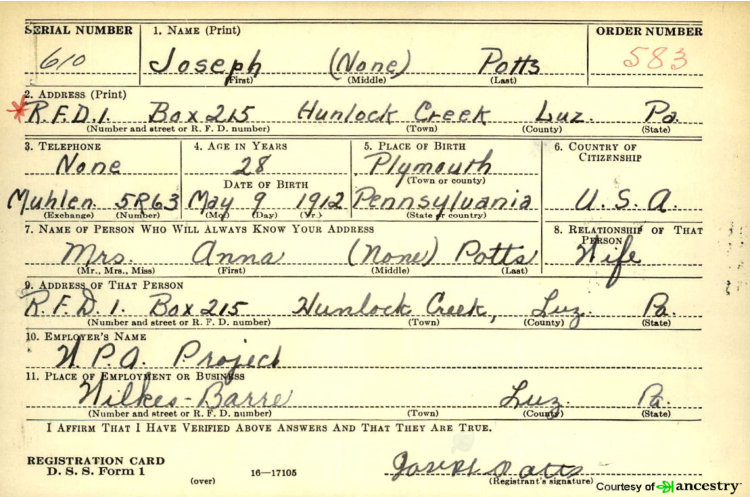 SERIAL NUMBER 1. NAME (Print) ORDER NUMBER
610 Joseph (None) Potts 583
(First) (Middle) (Last)
2. ADDRESS (Print)
*R.F.D.1. Box 215 Hunlock Creek Luz. Pa.
(Number and street or R. F. D. number) (Town) (County) (State)
3. TELEPHONE 4. AGE IN YEARS 5. PLACE OF BIRTH 6. COUNTRY OF CITIZENSHIP
None 28 Plymouth
(Town or county)
DATE OF BIRTH
Muhlen. 5R63 May 9 1912 Pennsylvania U.S.A.
(Exchange) (Number) (Mo.) (Day) (Yr.) (State or country)
7. NAME OF PERSON WHO WILL ALWAYS KNOW YOUR ADDRESS 8. RELATIONSHIP OF THAT PERSON
Mrs. Anna (None) Potts Wife
(Mr., Mrs., Miss) (First) (Middle) (Last)
9. ADDRESS OF THAT PERSON
R.F.D. 1. Box 215 Hunlock Creek, Luz. Pa.
(Number and street or R. F. D. number) (Town) (County) (State)
10. EMPLOYER'S NAME
W.P.A. Project
11. PLACE OF EMPLOYMENT OR BUSINESS
Wilkes-Barre Luz. Pa.
(Number and street or R. F. D. number) (Town) (County) (State)
I AFFIRM THAT I HAVE VERIFIED ABOVE ANSWERS AND THAT THEY ARE TRUE.
REGISTRATION CARD
D. S. S. Form 1 (over) 16—17105 Joseph Potts
(Registrant's signature)
Courtesy of ancestry